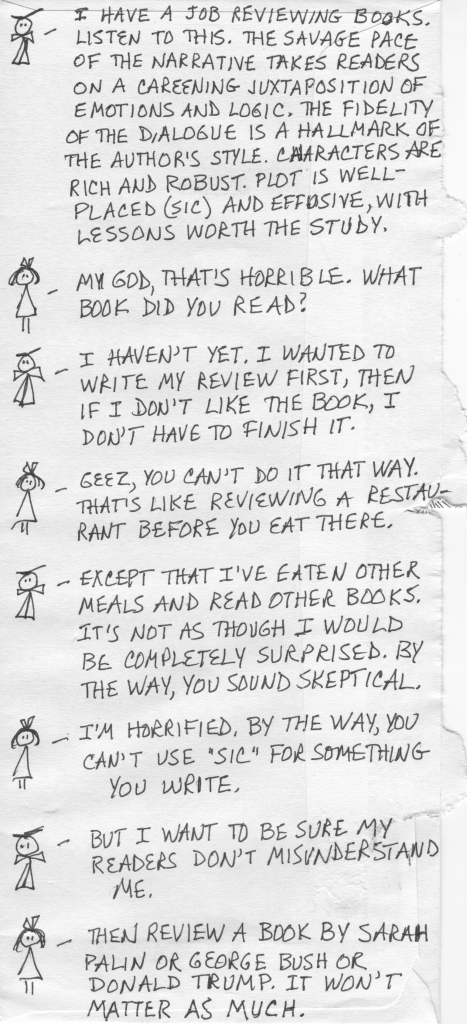 I HAVE A JOB REVIEWING BOOKS.
LISTEN TO THIS. THE SAVAGE PACE
OF THE NARRATIVE TAKES READERS
ON A CAREENING JUXTAPOSITION OF
EMOTIONS AND LOGIC. THE FIDELITY
OF THE DIALOGUE IS A HALLMARK OF
THE AUTHOR'S STYLE. CHARACTERS ARE
RICH AND ROBUST. PLOT IS WELL-
PLACED (SIC) AND EFFUSIVE, WITH
LESSONS WORTH THE STUDY.
MY GOD, THAT'S HORRIBLE. WHAT
BOOK DID YOU READ?
I HAVEN'T YET. I WANTED TO
WRITE MY REVIEW FIRST, THEN
IF I DON'T LIKE THE BOOK, I
DON'T HAVE TO FINISH IT.
GEEZ, YOU CAN'T DO IT THAT WAY.
THAT'S LIKE REVIEWING A RESTAU-
RANT BEFORE YOU EAT THERE.
EXCEPT THAT I'VE EATEN OTHER
MEALS AND READ OTHER BOOKS.
IT'S NOT AS THOUGH I WOULD
BE COMPLETELY SURPRISED. BY
THE WAY, YOU SOUND SKEPTICAL.
I'M HORRIFIED. BY THE WAY, YOU
CAN'T USE "SIC" FOR SOMETHING
YOU WRITE.
BUT I WANT TO BE SURE MY
READERS DON'T MISUNDERSTAND
ME.
THEN REVIEW A BOOK BY SARAH
PALIN OR GEORGE BUSH OR
DONALD TRUMP. IT WON'T
MATTER AS MUCH.